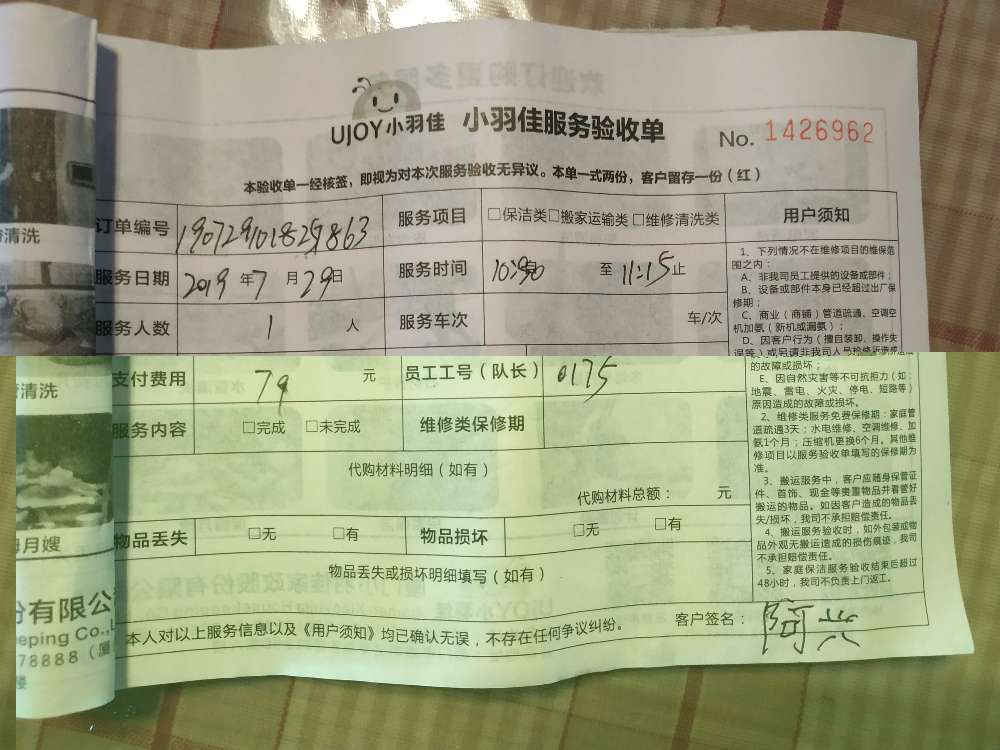 UJOY小羽佳 小羽佳服务验收单 No. 1426962
本验收单一经核签，即视为对本次服务验收无异议。本单一式两份，客户留存一份（红）
订单编号 服务项目 □保洁类□搬家运输类□维修清洗类 用户须知
服务日期 2019 年 7 月 29 日 服务时间 至 11:15 止
服务人数 1 人 服务车次 车/次
1、下列情况不在维修项目的维保范
围之内：
A、非我司员工提供的设备或部件；
B、设备或部件本身已经超过出厂保
修期；
C、商业（商铺）管道疏通、空调空
机加氨（新机或漏氨）；
D、因客户行为（擅自装卸、操作失
误等）或另请非我司人员检修所造成
的故障或损坏；
E、因自然灾害等不可抗拒力（如：
地震、雷电、火灾、停电、短路等）
原因造成的故障或损坏。
2、维修类服务免费保修期：家庭管
道疏通3天；水电维修、空调维修、加
氨1个月；压缩机更换6个月。其他维
修项目以服务验收单填写的保修期为
准。
3、搬运服务中，客户应随身保管证
件、首饰、现金等贵重物品并看管好
搬运的物品。如因客户造成的物品丢
失/损坏，我司不承担赔偿责任。
4、搬运服务验收时，如外包装或物
品外观无搬运造成的损伤痕迹，我司
不承担赔偿责任。
5、家庭保洁服务验收结束后超过
48小时，我司不负责上门返工。
支付费用 79 元 员工工号（队长） 0175
服务内容 □完成 □未完成 维修类保修期
代购材料明细（如有）
代购材料总额： 元
物品丢失 □无 □有 物品损坏 □无 □有
物品丢失或损坏明细填写（如有）
本人对以上服务信息以及《用户须知》均已确认无误，不存在任何争议纠纷。 客户签名：
清洗
清洗
月嫂
份有限公
eping Co.,L
78888（厦
楼